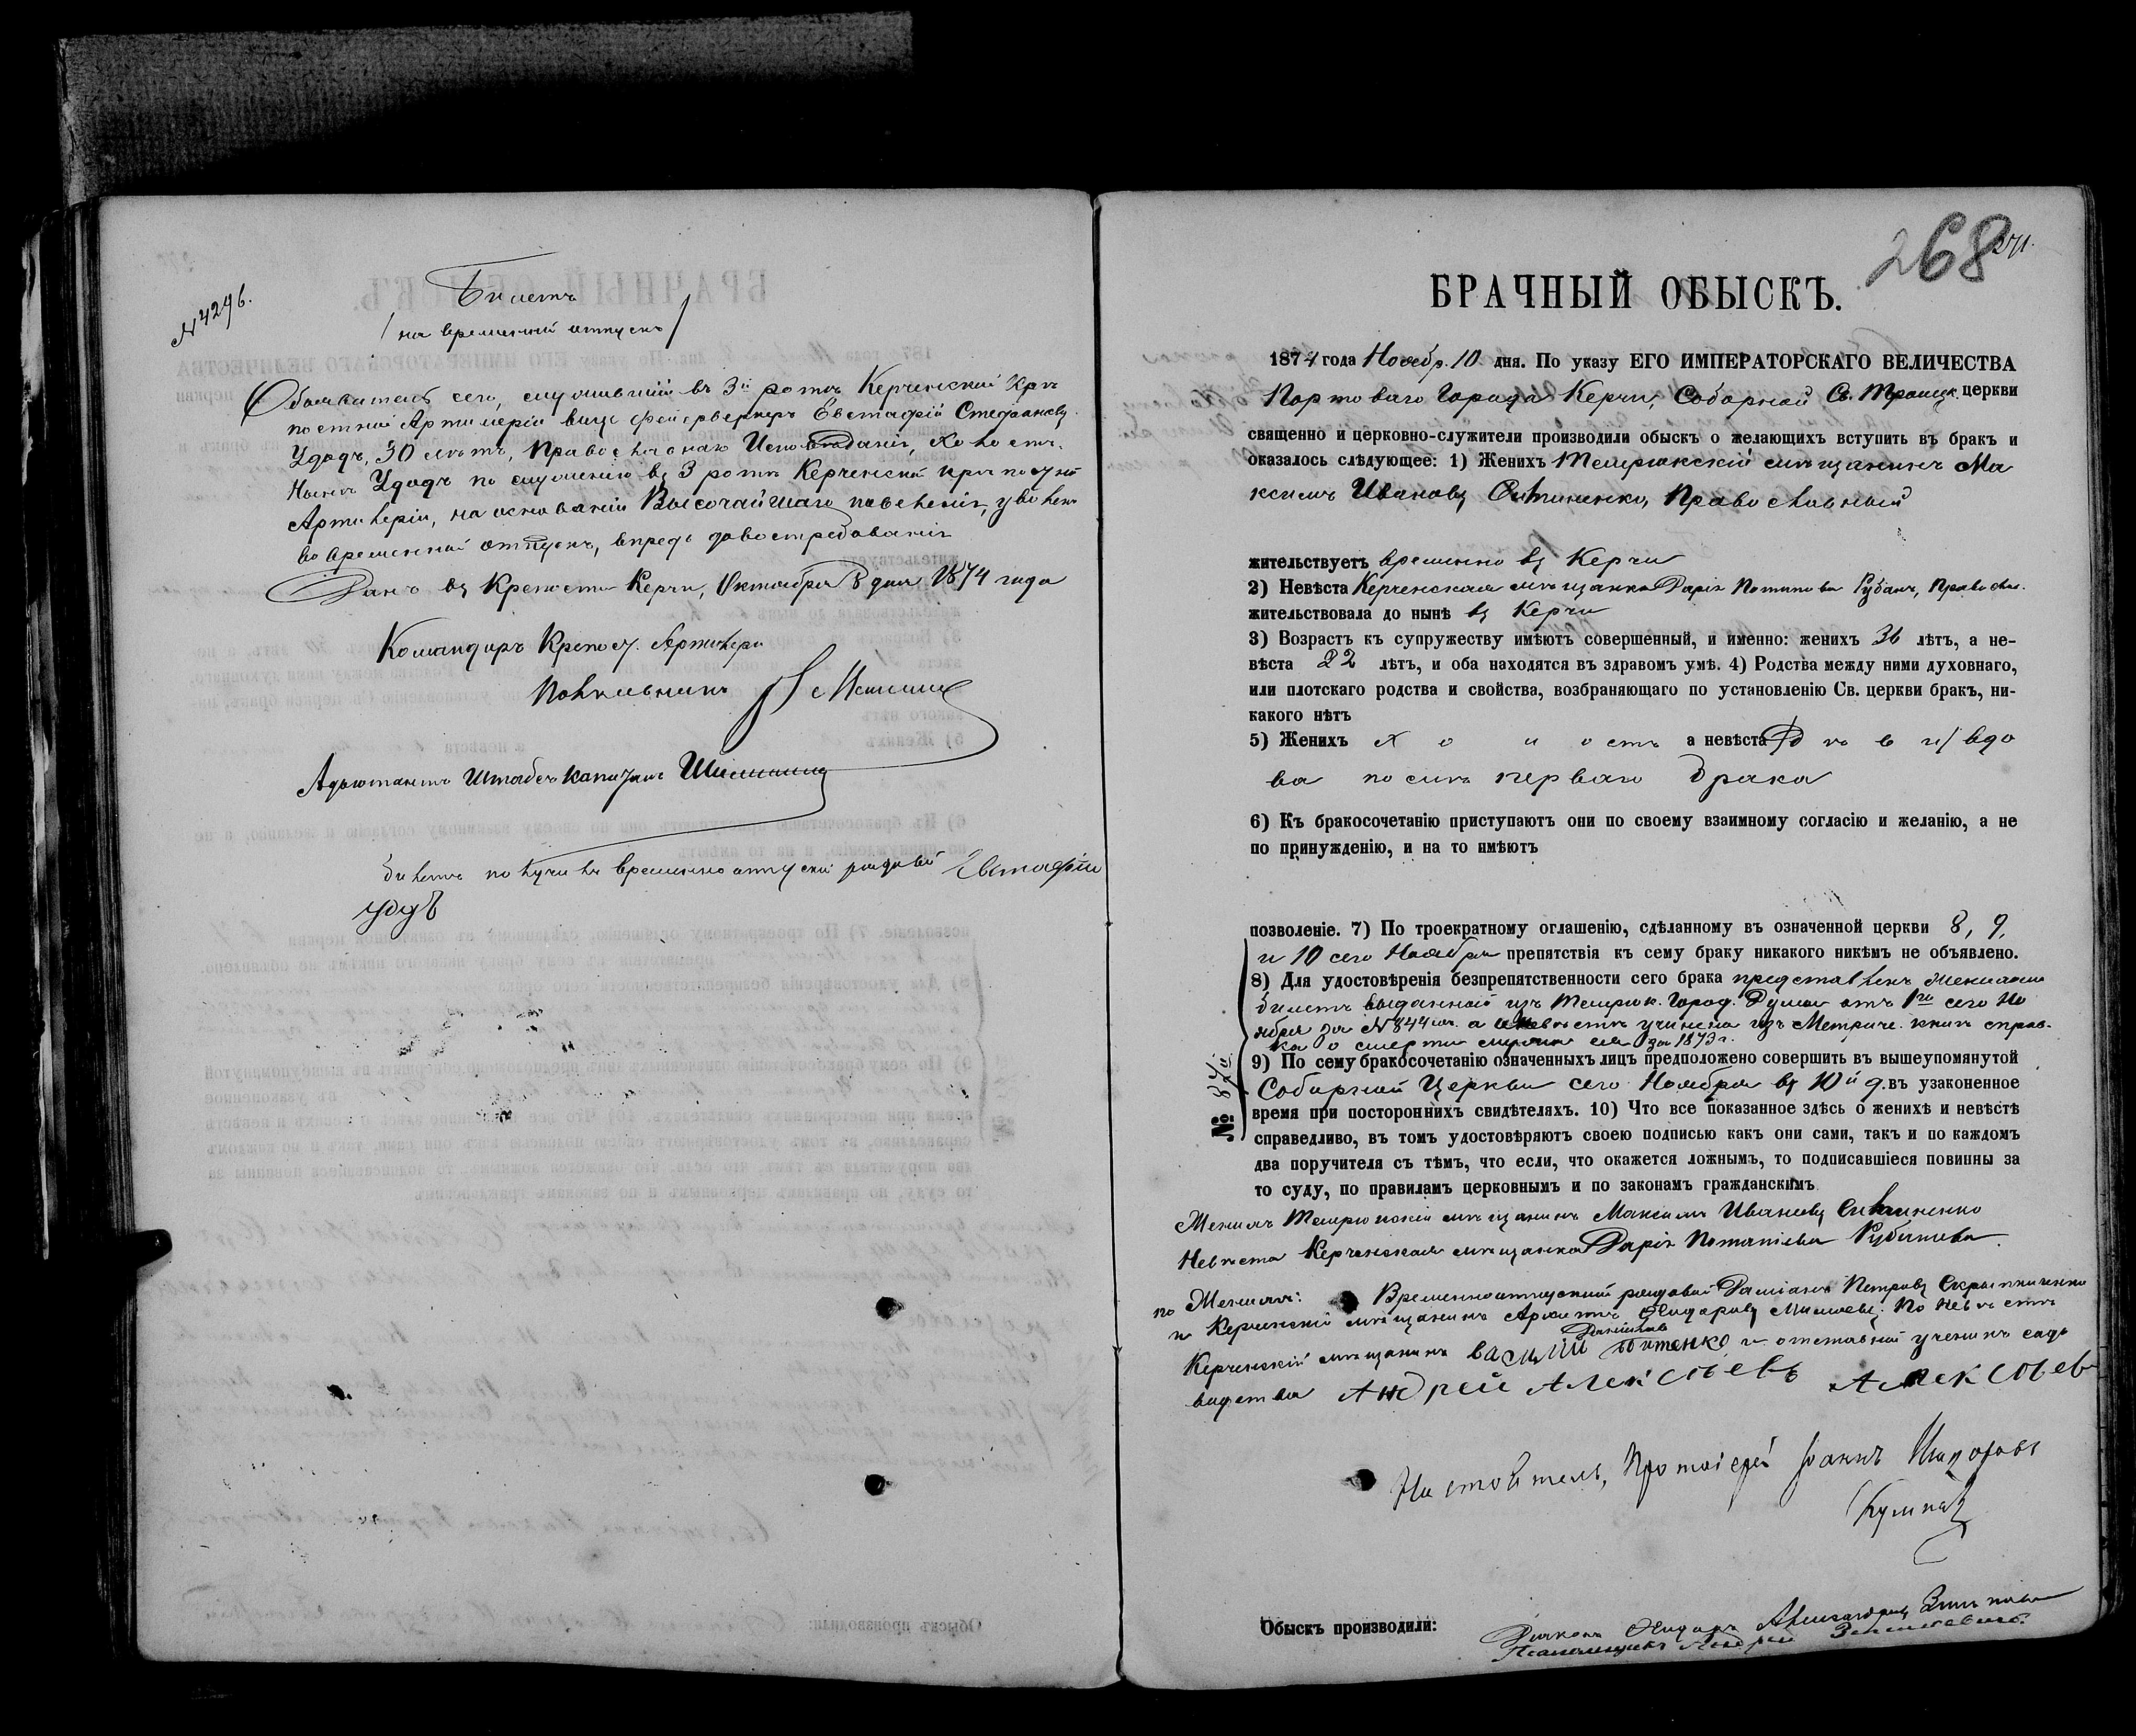 N 4296.
Билетъ
/ на временный отпускъ /
Объявитель сего, служившій въ 3й ротѣ Керченской Крѣ
постной Артилеріи вице фейерверкеръ Евстафій Стефановъ
Удодъ, 30 лѣтъ, Православнаго Исповѣданія, Холостъ.
Нынѣ Удодъ по служенію въ 3 ротѣ Керченской крѣпостной
Артилеріи, на основаніи Высочайшаго повеленія, уволенъ
во временной отпускъ, впредь до востребованія
Данъ въ Крепости Керчи, Октября 8 дня 1874 года
Командиръ Крепост. Артилери
Полковникъ
Адъютантъ Штабсъ Капитанъ
билетъ получилъ временно отпускной рядовой Евстафій
удудъ
268
271.
БРАЧНЫЙ ОБЫСКЪ.
1874 года Ноябр. 10 дня. По указу ЕГО ИМПЕРАТОРСКАГО ВЕЛИЧЕСТВА
Портоваго Города Керчи, Соборной Св. Троицк. церкви
священно и церковно-служители производили обыскъ о желающихъ вступить въ бракъ и
оказалось слѣдующее: 1) Женихъ Темрюкскій мѣщанинъ Ма
ксимъ Ивановъ Православный
жительствуетъ временно въ Керчи
2) Невѣста Керченская мѣщанка Дарія Потапова Рубанъ, Правосл.
жительствовала до нынѣ въ Керчи
3) Возрастъ къ супружеству имѣютъ совершенный, и именно: женихъ 36 лѣтъ, а не-
вѣста 22 лѣтъ, и оба находятся въ здравомъ умѣ. 4) Родства между ними духовнаго,
или плотскаго родства и свойства, возбраняющаго по установленію Св. церкви бракъ, ни-
какого нѣтъ
5) Женихъ холостъ а невѣста вдо
ва послѣ перваго брака
6) Къ бракосочетанію приступаютъ они по своему взаимному согласію и желанію, а не
по принужденію, и на то имѣютъ
позволеніе. 7) По троекратному оглашенію, сдѣланному въ означенной церкви 8, 9,
и 10 сего Ноября препятствія къ сему браку никакого никѣмъ не объявлено.
8) Для удостовѣренія безпрепятственности сего брака представленъ женихомъ
билетъ выданной изъ Темрюк. Город. Думы отъ 1го сего Но
ября за N 844 а о невѣстѣ учинена изъ Метриче. книгъ справ-
ка о смерти мужа ея за 1873 г.
9) По сему бракосочетанію означенныхъ лицъ предположено совершить въ вышеупомянутой
Соборной Церкви сего Ноября въ 10й д. въ узаконенное
№ 87й
время при постороннихъ свидѣтеляхъ. 10) Что все показанное здѣсь о женихѣ и невѣстѣ
справедливо, въ томъ удостовѣряютъ своею подписью какъ они сами, такъ и по каждомъ
два поручителя съ тѣмъ, что если, что окажется ложнымъ, то подписавшіеся повинны за
то суду, по правиламъ церковнымъ и по законамъ гражданскимъ
Женихъ Темрюкскій мѣщанинъ Максимъ Ивановъ
Невѣста Керченская мѣщанка Дарія Потапіева Рубанова
по Женихѣ: Временноотпускной рядовой Даміанъ Петровъ Скрыпниченко
и Керченскій мѣщанинъ По Невѣстѣ
Керченскій мѣщанинъ василий и отставной ученикъ садо
водства Андрей Алексѣевъ Алексѣев
Настоятель, Протоіерей Іоаннъ
Обыскъ производили: Діаконъ Александръ
Псаломщикъ Андрей